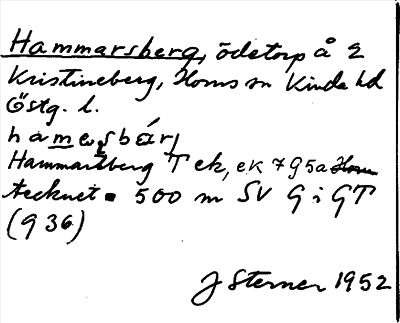 Hammarsberg, ödetorp å 2
Kristineberg, Horns sn Kinda hd
Östg. l.
hamersbärj
Hammarsberg T ek, ek 7 G5a
tecknet 500 m SV G i GT
(936)
J Sterner 1952